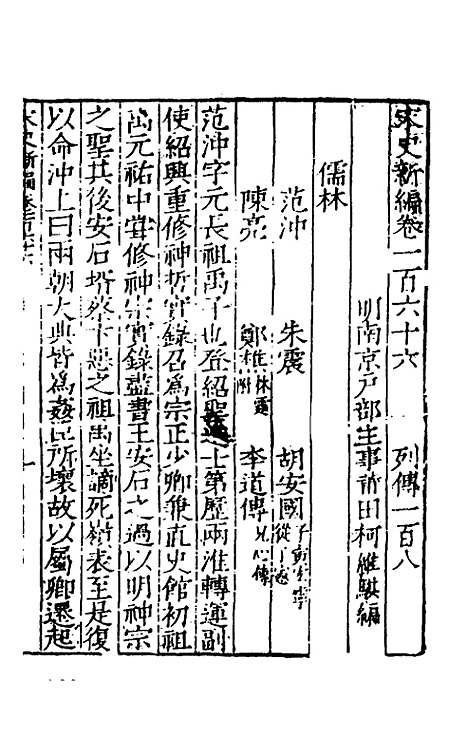 宋史新編卷一百六十六　列傳一百八
明南京戶部主事莆田柯維騏編
儒林
范沖　朱震　胡安國子寅宏寧從子憲
陳亮　鄭樵林霆附　李道傳兄心傳
范沖字元長祖禹子也登紹聖進士第歷兩淮轉運副
使紹興重修神哲實錄召爲宗正少卿兼直史館初祖
禹元祐中嘗修神宗實錄盡書王安石之過以明神宗
之聖其後安石壻蔡卞惡之祖禹坐謫死嶺表至是復
以命沖上曰兩朝大典皆爲姦臣所壞故以屬卿遂起
宋史新編卷一百六十六